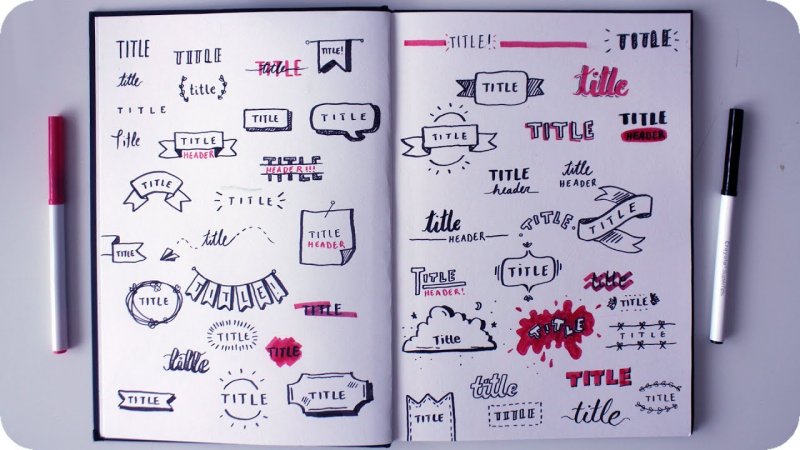 TITLE
TITLE
title
TITLE
title
TITLE!
title
TITLE
TITLE
TITLE
Title
TITLE
HEADER
TITLE
HEADER!!!
TITLE
TITLE
TITLE
HEADER
title
TITLE
TITLE
TITLE!
TITLE
TITLE
TITLE
title
TITLE
TITLE
TITLE
TITLE
TITLE!
TITLE
TITLE
title
TITLE
TITLE
TITLE
HEADER
TITLE
header
title
HEADER
title
HEADER
TITLE
TITLE
TITLE
TITLE
HEADER!
title
TITLE
Title
TITLE
TITLE
title
TITLE
TITLE
TITLE
TITLE
title